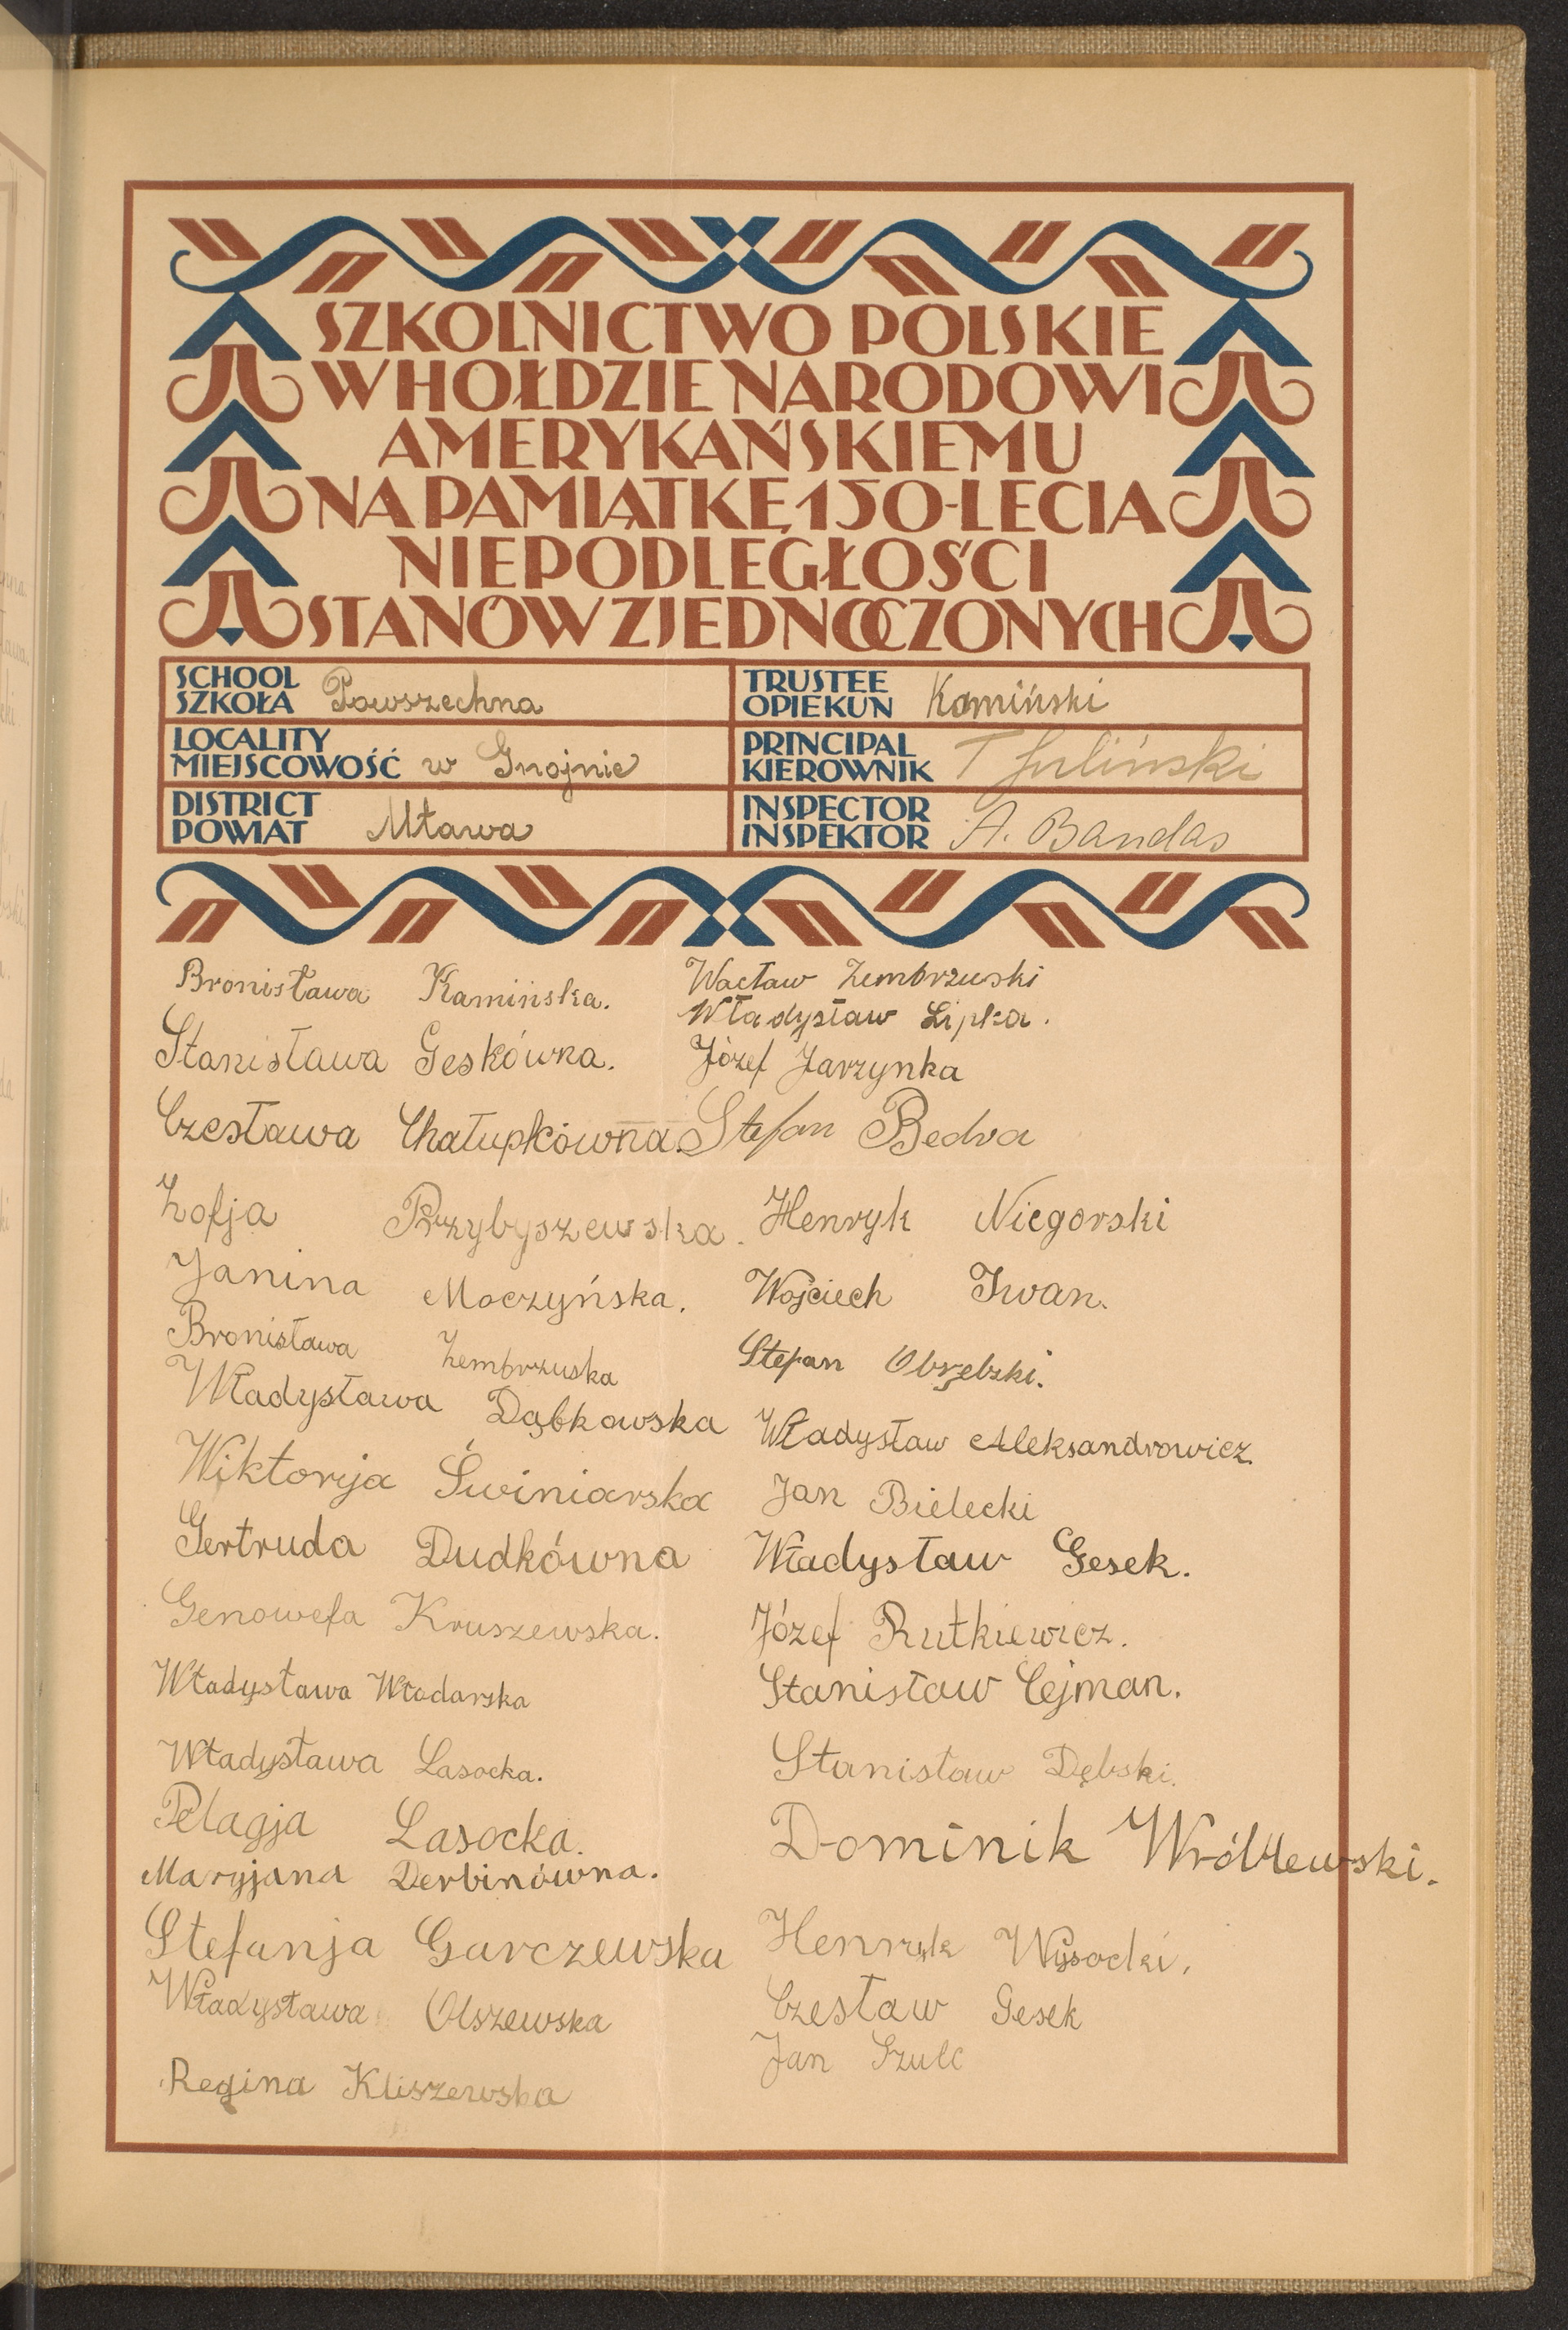 SZKOLNICTWO POLSKIE
W HOŁDZIE NARODOWI
AMERYKAŃSKIEMU
NA PAMIĄTKĘ 150-LECIA
NIEPODLEGŁOŚCI
STANÓW ZJEDNOCZONYCH
SCHOOL
SZKOŁA Powszechna
TRUSTEE
OPIEKUN Kamiński
LOCALITY
MIEJSCOWOŚĆ w Gnojnie
PRINCIPAL
KIEROWNIK T Juliński
DISTRICT
POWIAT Mława
INSPECTOR
INSPEKTOR A. Bandas
Bronisława Kamińska.
Stanisława Geskówna.
Czesława Chałupkówna.
Zofja Przybyszewska.
Janina Moczyńska.
Bronisława Zembrzuska
Władysława Dąbkowska
Wiktorja Świniarska
Gertruda Dudkówna
Genowefa Kruszewska.
Władysława Włodarska
Władysława Lasocka.
Pelagja Lasocka.
Maryjana Derbinówna.
Stefanja Garczewska
Władysława Olszewska
Regina Kliszewska
Wacław Zembrzuski
Władysław Lipka.
Józef Jarzynka
Stefan Bedra
Henryk Niegorski
Wojciech Iwan.
Stefan Obrębski.
Władysław Aleksandrowicz.
Jan Bielecki
Władysław Gesek.
Józef Rutkiewicz.
Stanisław Cejman.
Stanisław Dębski.
Dominik Wróblewski.
Henryk Wysocki.
Czesław Gesek
Jan Szulc